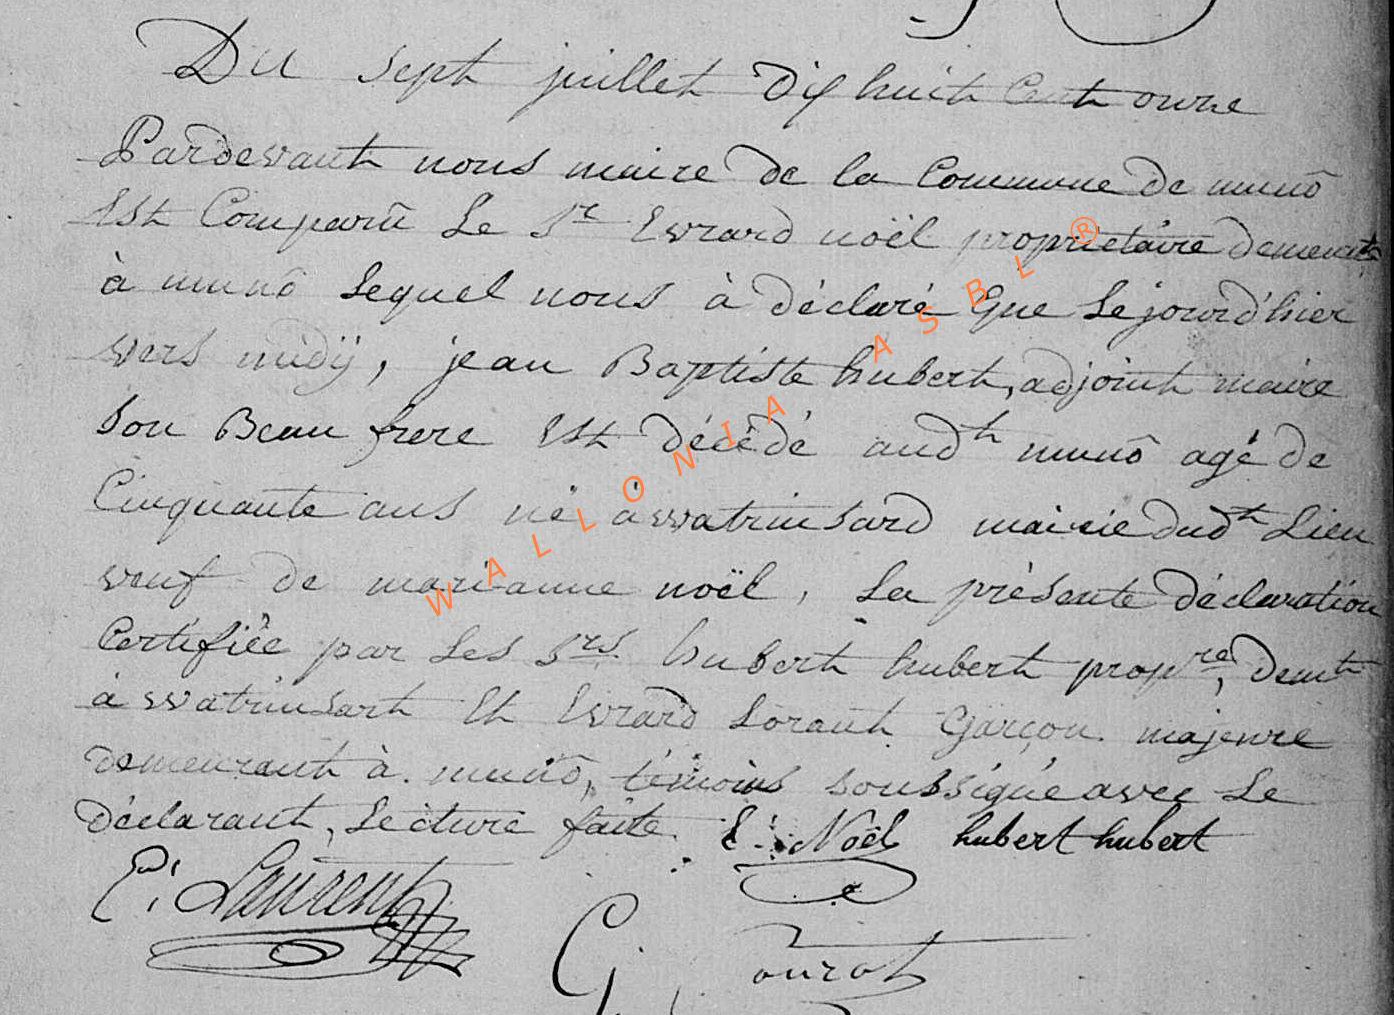 Du sept juillet dix huit Cent onze
Pardevant nous maire de la Commune de munô
Est Comparû Le Sr Evrard noël propriétaire demeurt
à munô Lequel nous à déclaré Que Le jourd'hier
vers midÿ, jean Baptiste hubert, adjoint maire
son Beau frere Est décédé audt munô agé de
Cinquante ans né à watrinsard mairie dudt Lieu
veuf de marianne noël, La présente déclaration
Certifiée par Les Srs hubert hubert propre, demt
à watrinsart Et Evrard Lorant Garçon majeure
demeurant à munô, témoins soussigné avec Le
déclarant, Lecture faite. E: Noël hubert hubert
E: Laurent
G: Tourot
WALLONIA ASBL ®